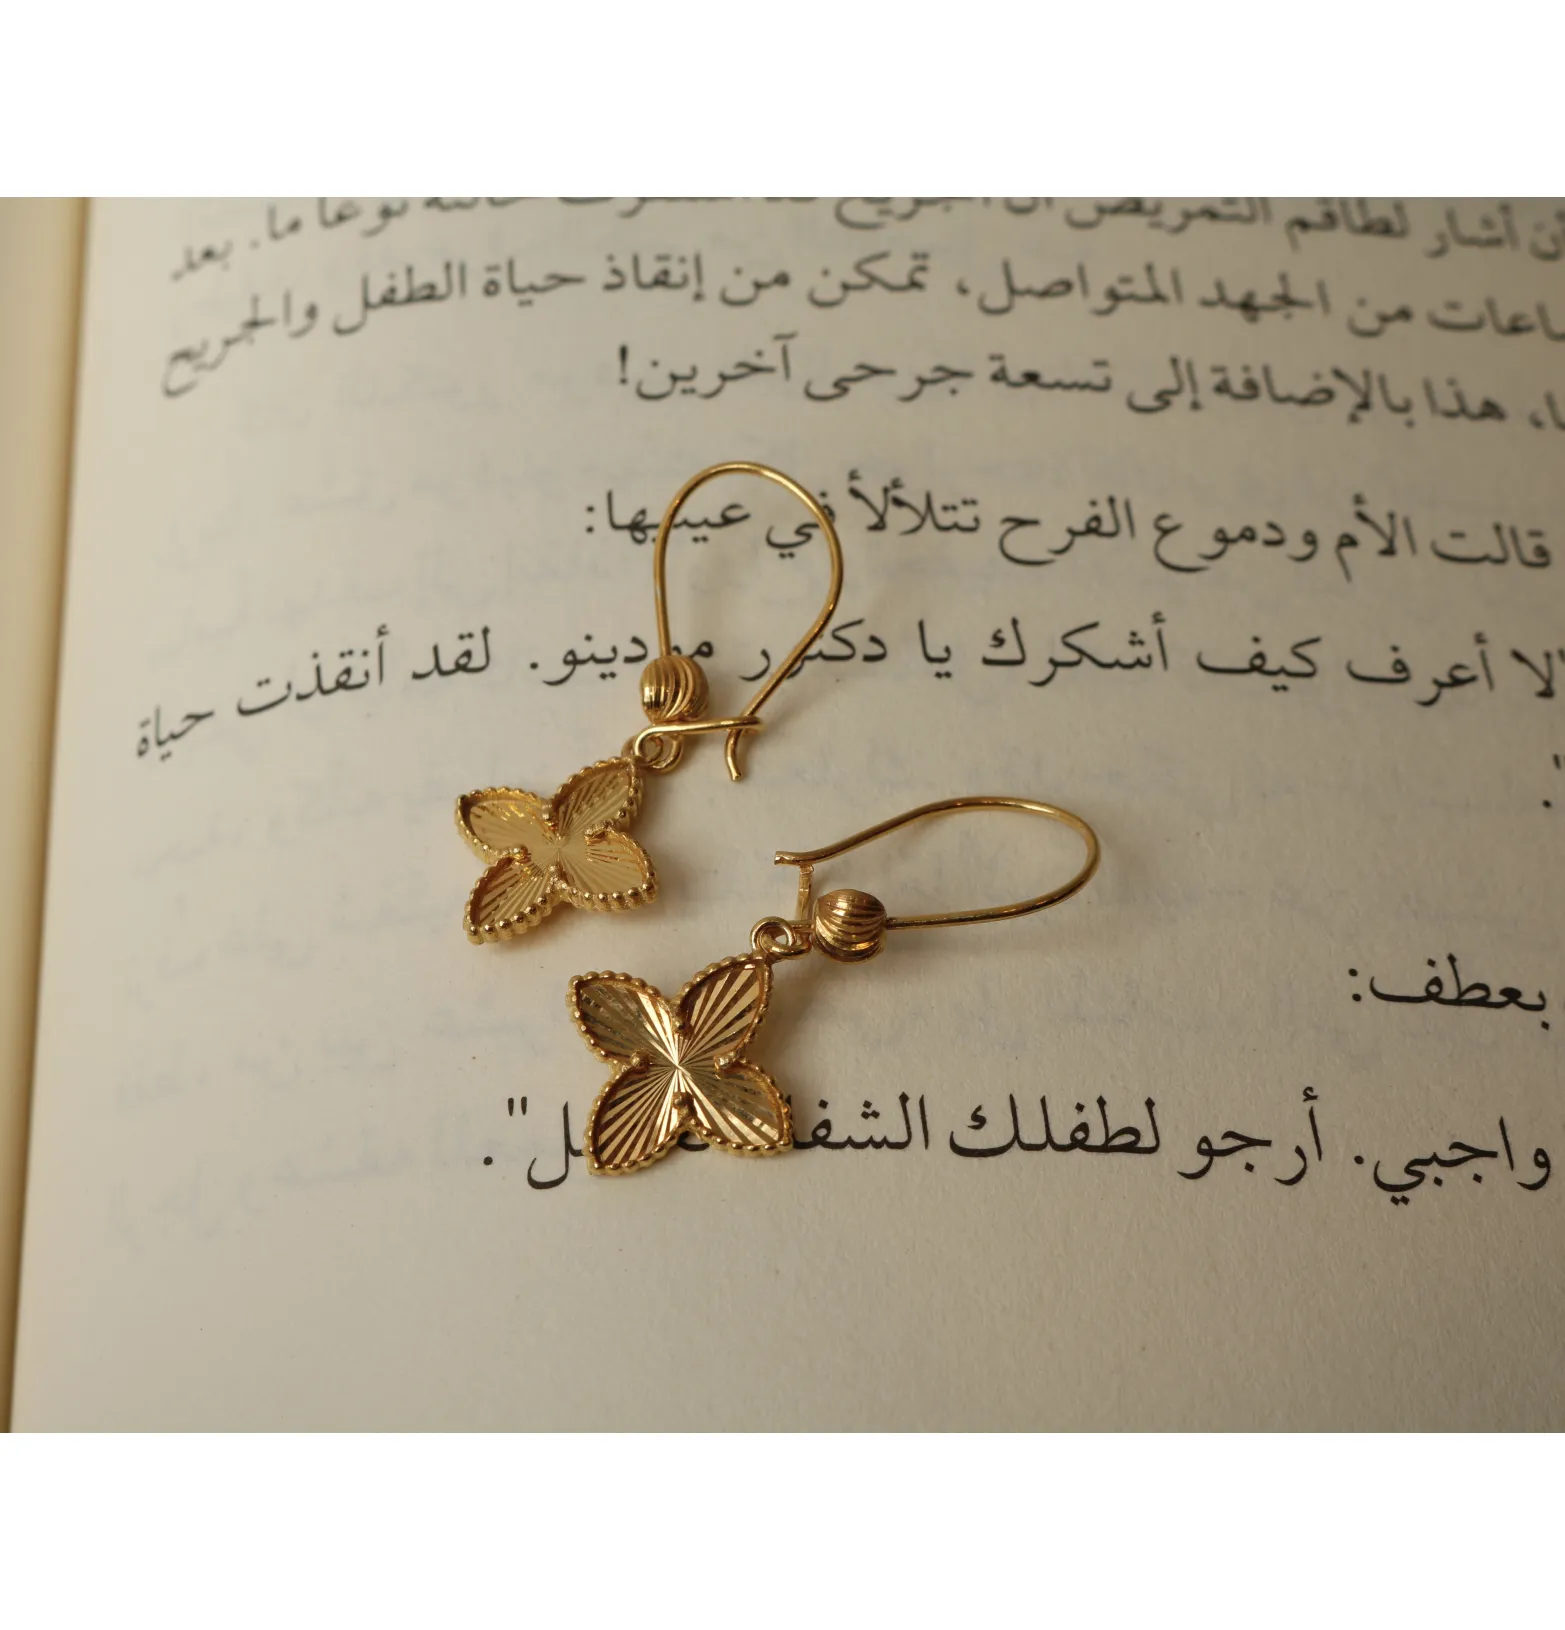 أن أشار لطاقم التمريض أن الجريح قد نوعا ما. بعد
ساعات من الجهد المتواصل، تمكن من إنقاذ حياة الطفل والجريح
هذا بالإضافة إلى تسعة جرحى آخرين!
قالت الأم ودموع الفرح تتلألأ في عينيها:
لا أعرف كيف أشكرك يا دكتور مردينو. لقد أنقذت حياة
".
بعطف:
واجبي. أرجو لطفلك الشفاء".